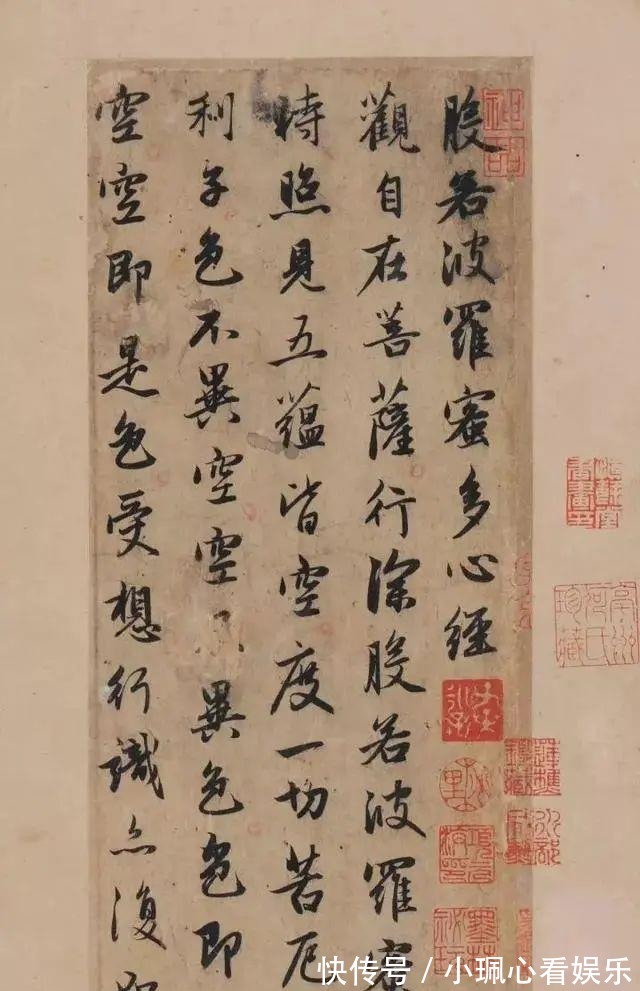 般若波羅蜜多心經
觀自在菩薩行深般若波羅蜜
時照見五蘊皆空度一切苦厄
利子色不異空空異色色即
空空即是色受想行識亦復如
亳州何氏珍藏
快传号 / 小珮心看娱乐